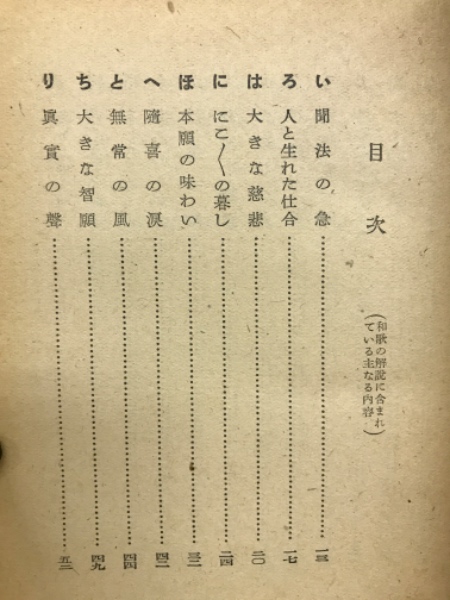 目次
(和歌の解説に含まれ
ている主なる内容)
い 聞法の急 一三
ろ 人と生れた仕合 一七
は 大きな慈悲 二〇
に にこ〳〵の暮し 二四
ほ 本願の味わい 三二
へ 隨喜の涙 四二
と 無常の風 四四
ち 大きな智願 四九
り 眞實の聲 五二